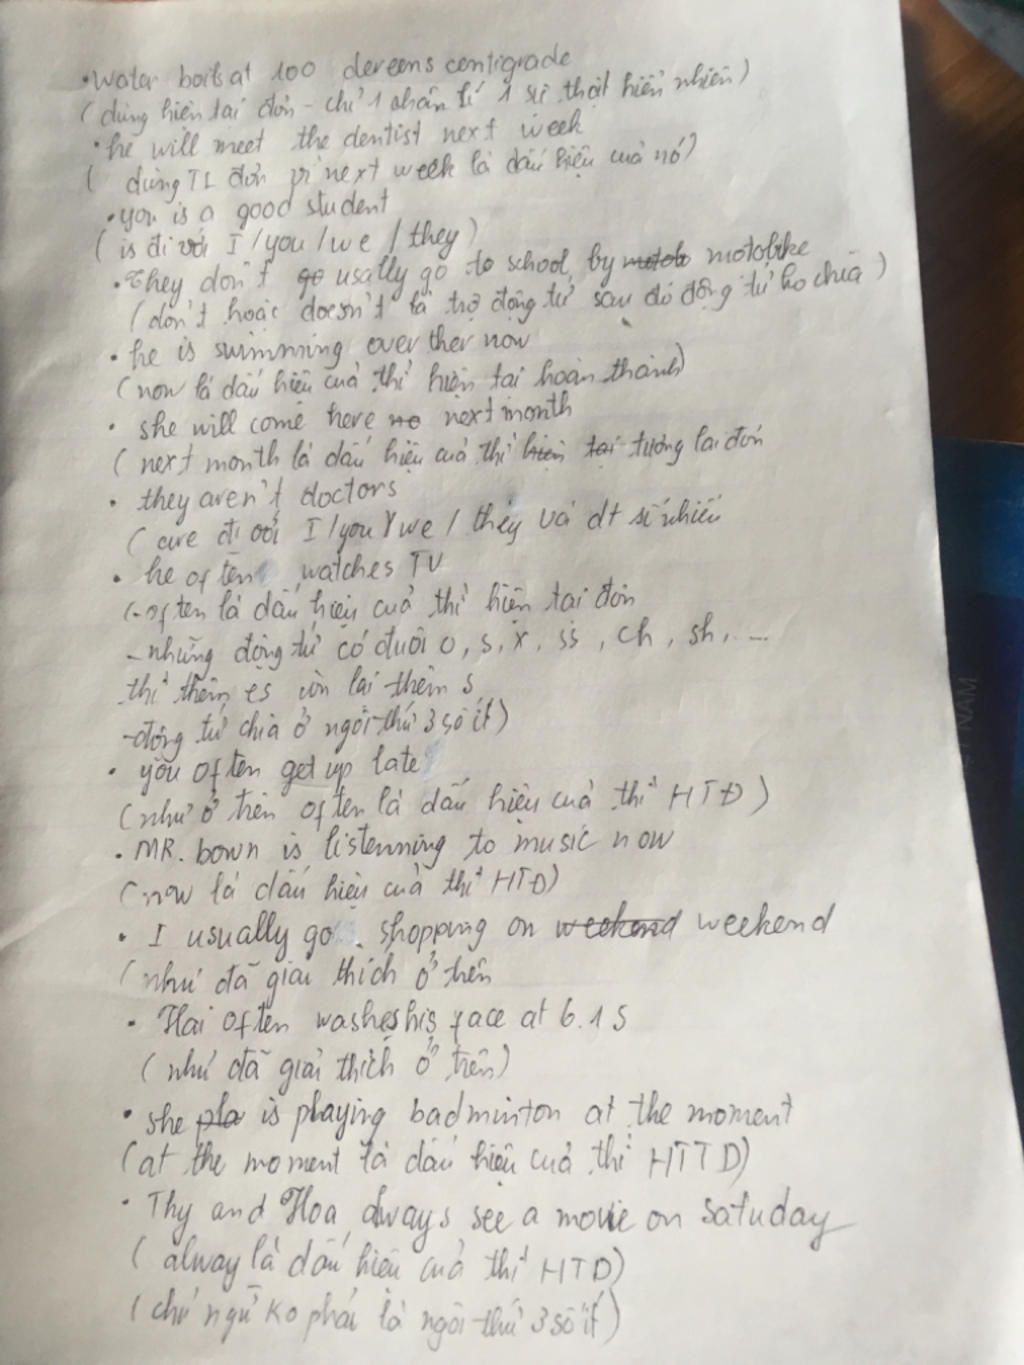 • Water boils at 100 dereens centigrade
(dùng hiện tại đơn - chỉ 1 chân lí 1 sự thật hiển nhiên)
• he will meet the dentist next week
( dùng TL đơn vì next week là dấu hiệu cuả nó)
• you is a good student
( is đi với I / you / we / they)
• They don't go usally go to school by motob motobike
(don't hoặc doesn't là trợ động từ sau đó động từ ko chia )
• he is swimming over ther now
(now là dấu hiệu cuả thì hiện tại hoàn thành)
• she will come here no next month
( next month là dấu hiệu cuả thì hiện tại tương lai đơn
• they aren't doctors
( are đi với I / you / we / they và dt số nhiều
• he often watches TV
(-often là dấu hiệu cuả thì hiện tại đơn
- những động từ có đuôi o, s, x, ss, ch, sh, ...
thì thêm es còn lại thêm s
-động từ chia ở ngôi thứ 3 số ít)
• you often get up late
(như ở trên often là dấu hiệu cuả thì HTĐ )
• MR. bown is listenning to music now
(now là dấu hiệu cuả thì HTĐ)
• I usually go shopping on weekend weekend
(như đã giải thích ở trên
• Hai often washes his face at 6.15
( như đã giải thích ở trên)
• she pla is playing badminton at the moment
(at the moment là dấu hiệu cuả thì HTTD)
• Thy and Hoa always see a movie on satuday
( alway là dấu hiệu cuả thì HTD)
( chủ ngữ ko phải là ngôi thứ 3 số ít)
NAM